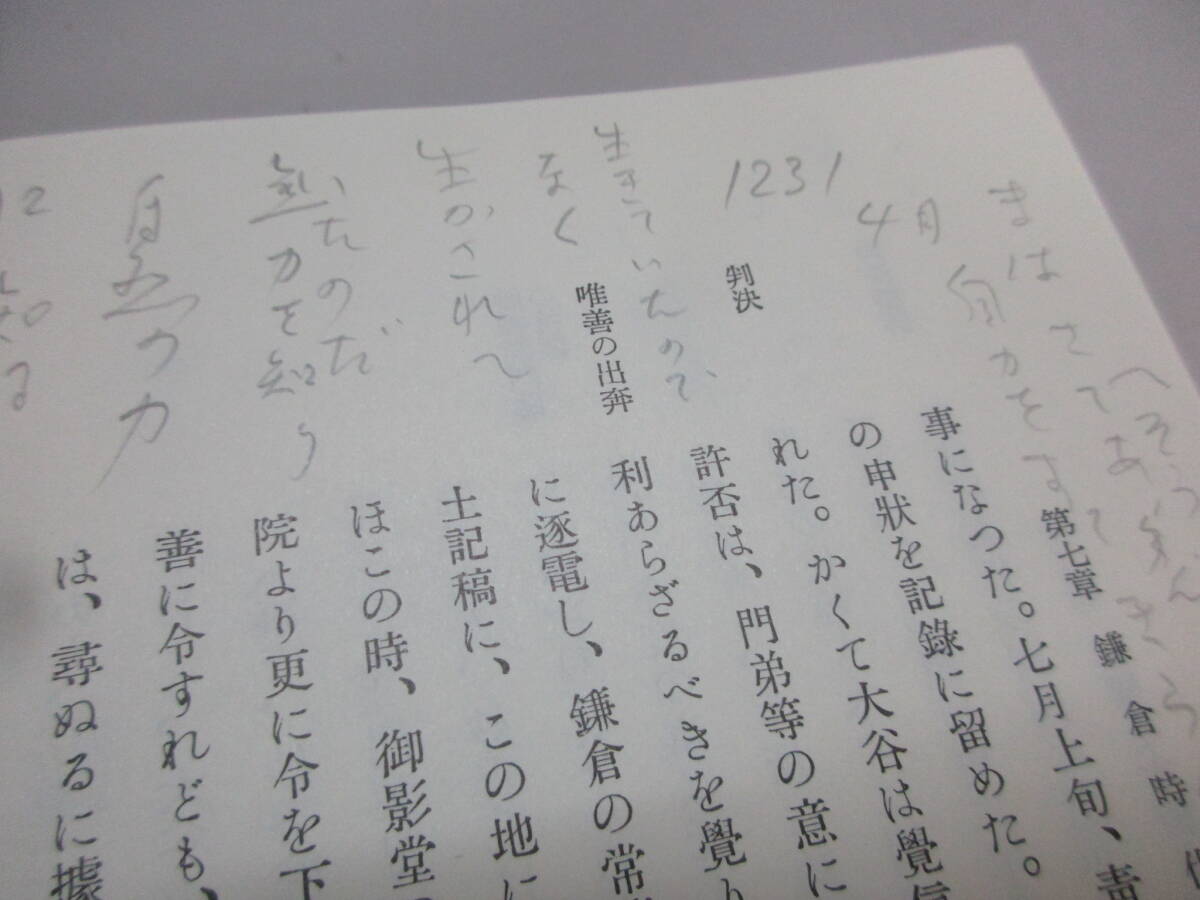 まはさてあ
自力をすて
4月
1231
生きていたので
なく
生かされて
いたのだ
無力を知り
自然の力
12
知る
第七章 鎌倉時
判決
唯善の出奔
事になつた。七月上旬、靑
の申狀を記錄に留めた。
れた。かくて大谷は覺信
許否は、門弟等の意に
利あらざるべきを覺り
に逐電し、鎌倉の常
土記稿に、この地に
ほこの時、御影堂
院より更に令を下
善に令すれども、
は、尋ぬるに據